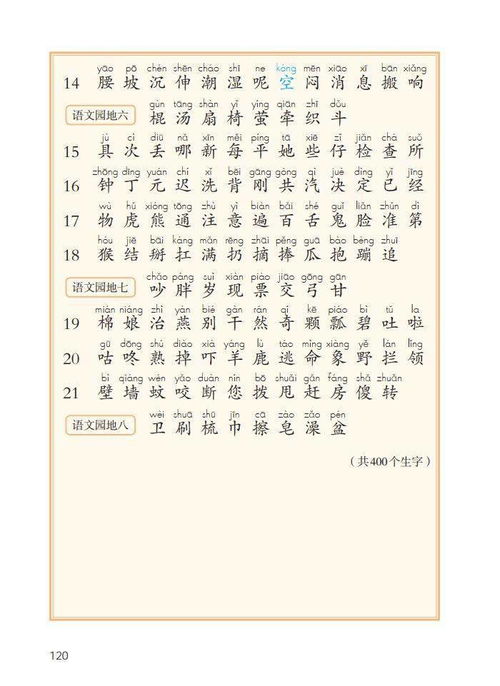 yāo pō chén shēn cháo shī ne kòng mēn xiāo xī bān xiǎng
14 腰 坡 沉 伸 潮 湿 呢 空 闷 消 息 搬 响
gùn tāng shàn yǐ yíng qiān zhī dǒu
语文园地六 棍 汤 扇 椅 萤 牵 织 斗
jù cì diū nǎ xīn měi píng tā xiē zǐ jiǎn chá suǒ
15 具 次 丢 哪 新 每 平 她 些 仔 检 查 所
zhōng dīng yuán chí xǐ bēi gāng gòng qì jué dìng yǐ jīng
16 钟 丁 元 迟 洗 背 刚 共 汽 决 定 已 经
wù hǔ xióng tōng zhù yì biàn bǎi shé guǐ liǎn zhǔn dì
17 物 虎 熊 通 注 意 遍 百 舌 鬼 脸 准 第
hóu jiē bāi káng mǎn rēng zhāi pěng guā bào bèng zhuī
18 猴 结 掰 扛 满 扔 摘 捧 瓜 抱 蹦 追
chǎo pàng suì xiàn piào jiāo gōng gān
语文园地七 吵 胖 岁 现 票 交 弓 甘
mián niáng zhì yàn bié gān rán qí kē piáo bì tǔ la
19 棉 娘 治 燕 别 干 然 奇 颗 瓢 碧 吐 啦
gū dōng shú diào xià yáng lù táo mìng xiàng yě lán lǐng
20 咕 咚 熟 掉 吓 羊 鹿 逃 命 象 野 拦 领
bì qiáng wén yǎo duàn nín bō shuǎi gǎn fáng shǎ zhuǎn
21 壁 墙 蚊 咬 断 您 拨 甩 赶 房 傻 转
wèi shuā shū jīn cā zào zǎo pén
语文园地八 卫 刷 梳 巾 擦 皂 澡 盆
（共400个生字）
120